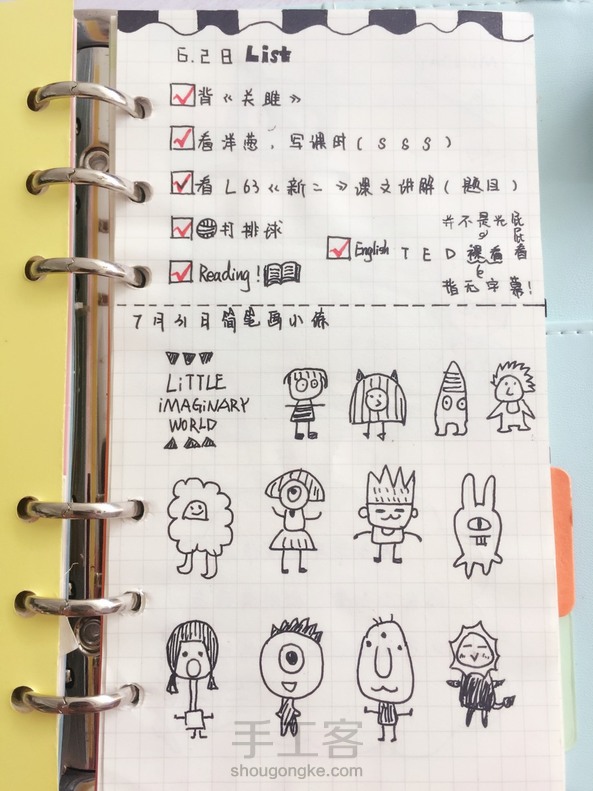 6.28 List
背《关雎》
看洋葱，写课时(SSS)
看L63《新二》课文讲解(题目)
打排球
English TED 裸看
并不是光屁屁看
指无字幕!
Reading!
7月31日简笔画小练
LiTTLE
iMAGiNARY
WORLD
手工客
shougongke.com